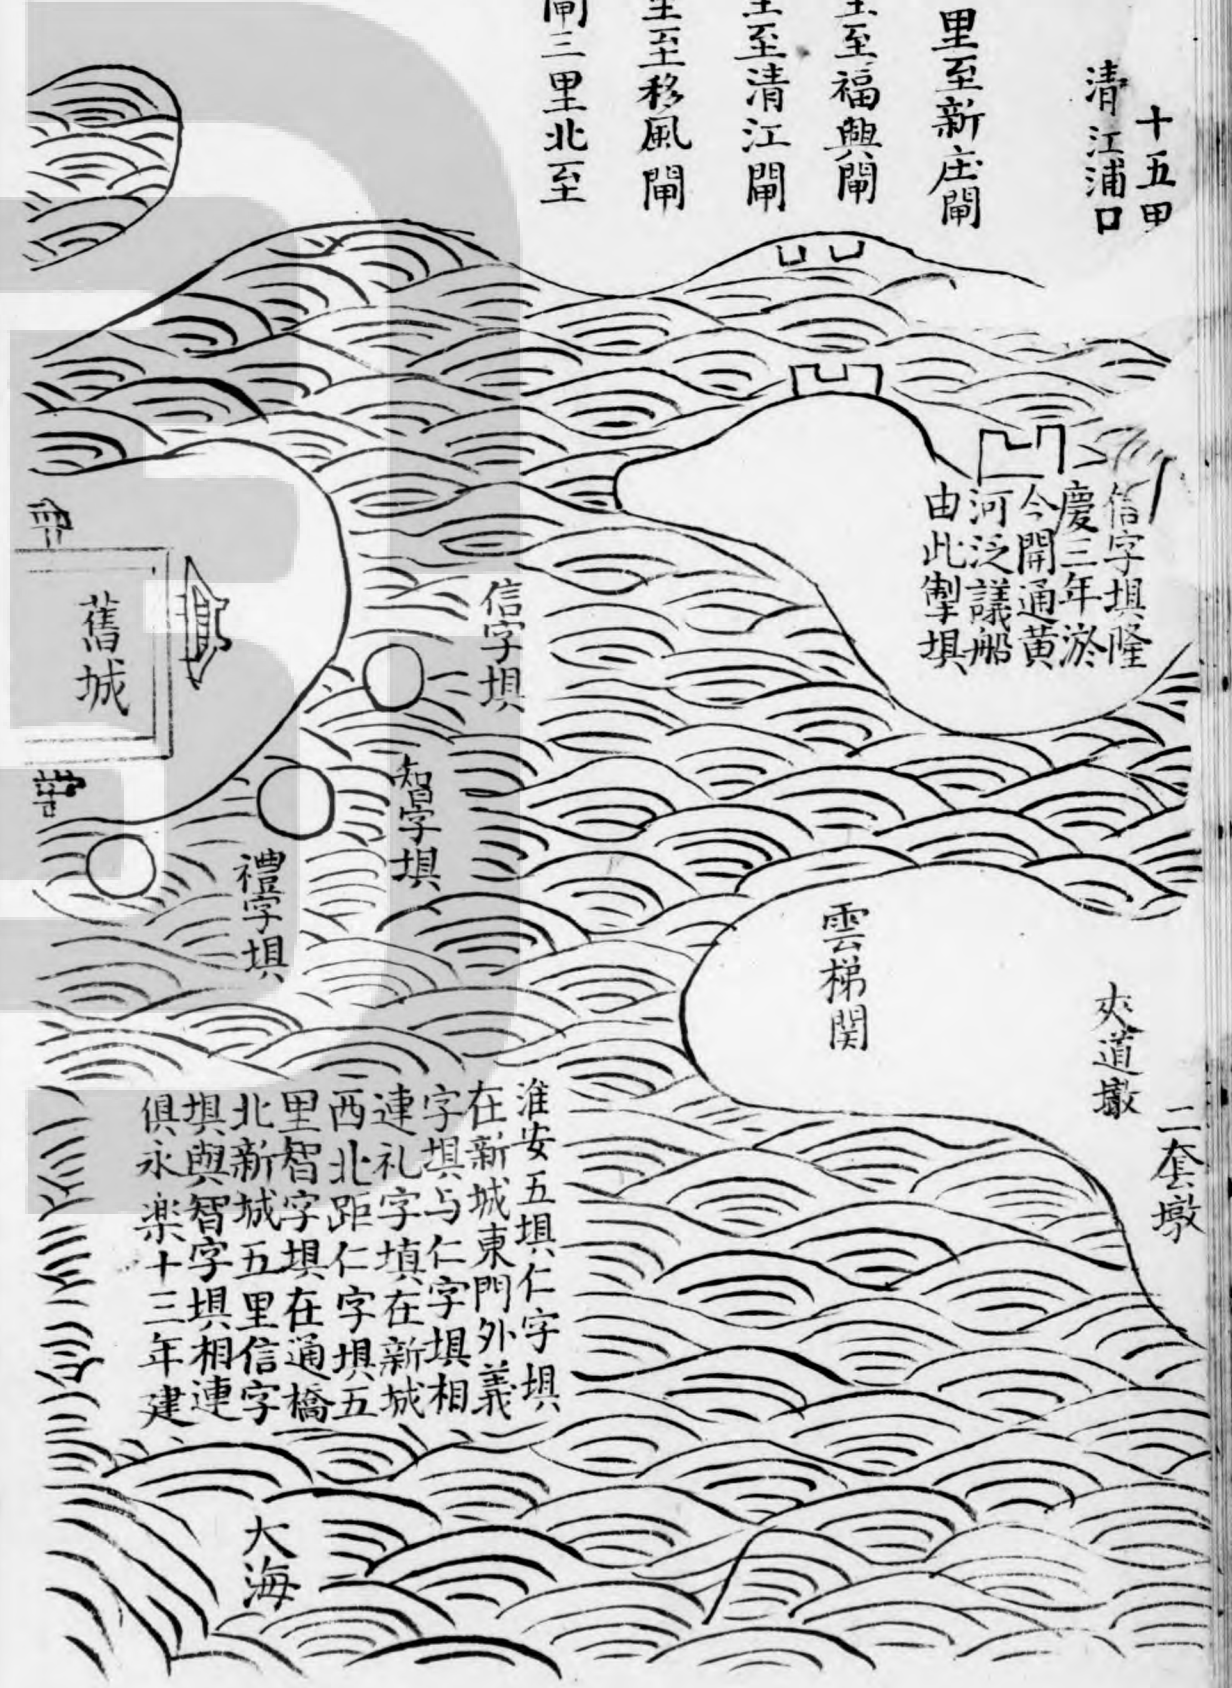 十五甲
清江浦口
里至新庄閘
至福興閘
至清江閘
至移風閘
閘三里北至
信字埧隆
慶三年淤
今開通黄
河泛議船
由此掣埧
信字埧
智字埧
禮字埧
舊城
雲梯関
夾道墩
二套墩
淮安五埧仁字埧
在新城東門外義
字埧与仁字埧相
連礼字填在新城
西北距仁字埧五
里智字埧在通橋
北新城五里信字
埧與智字埧相連
俱永楽十三年建
大海